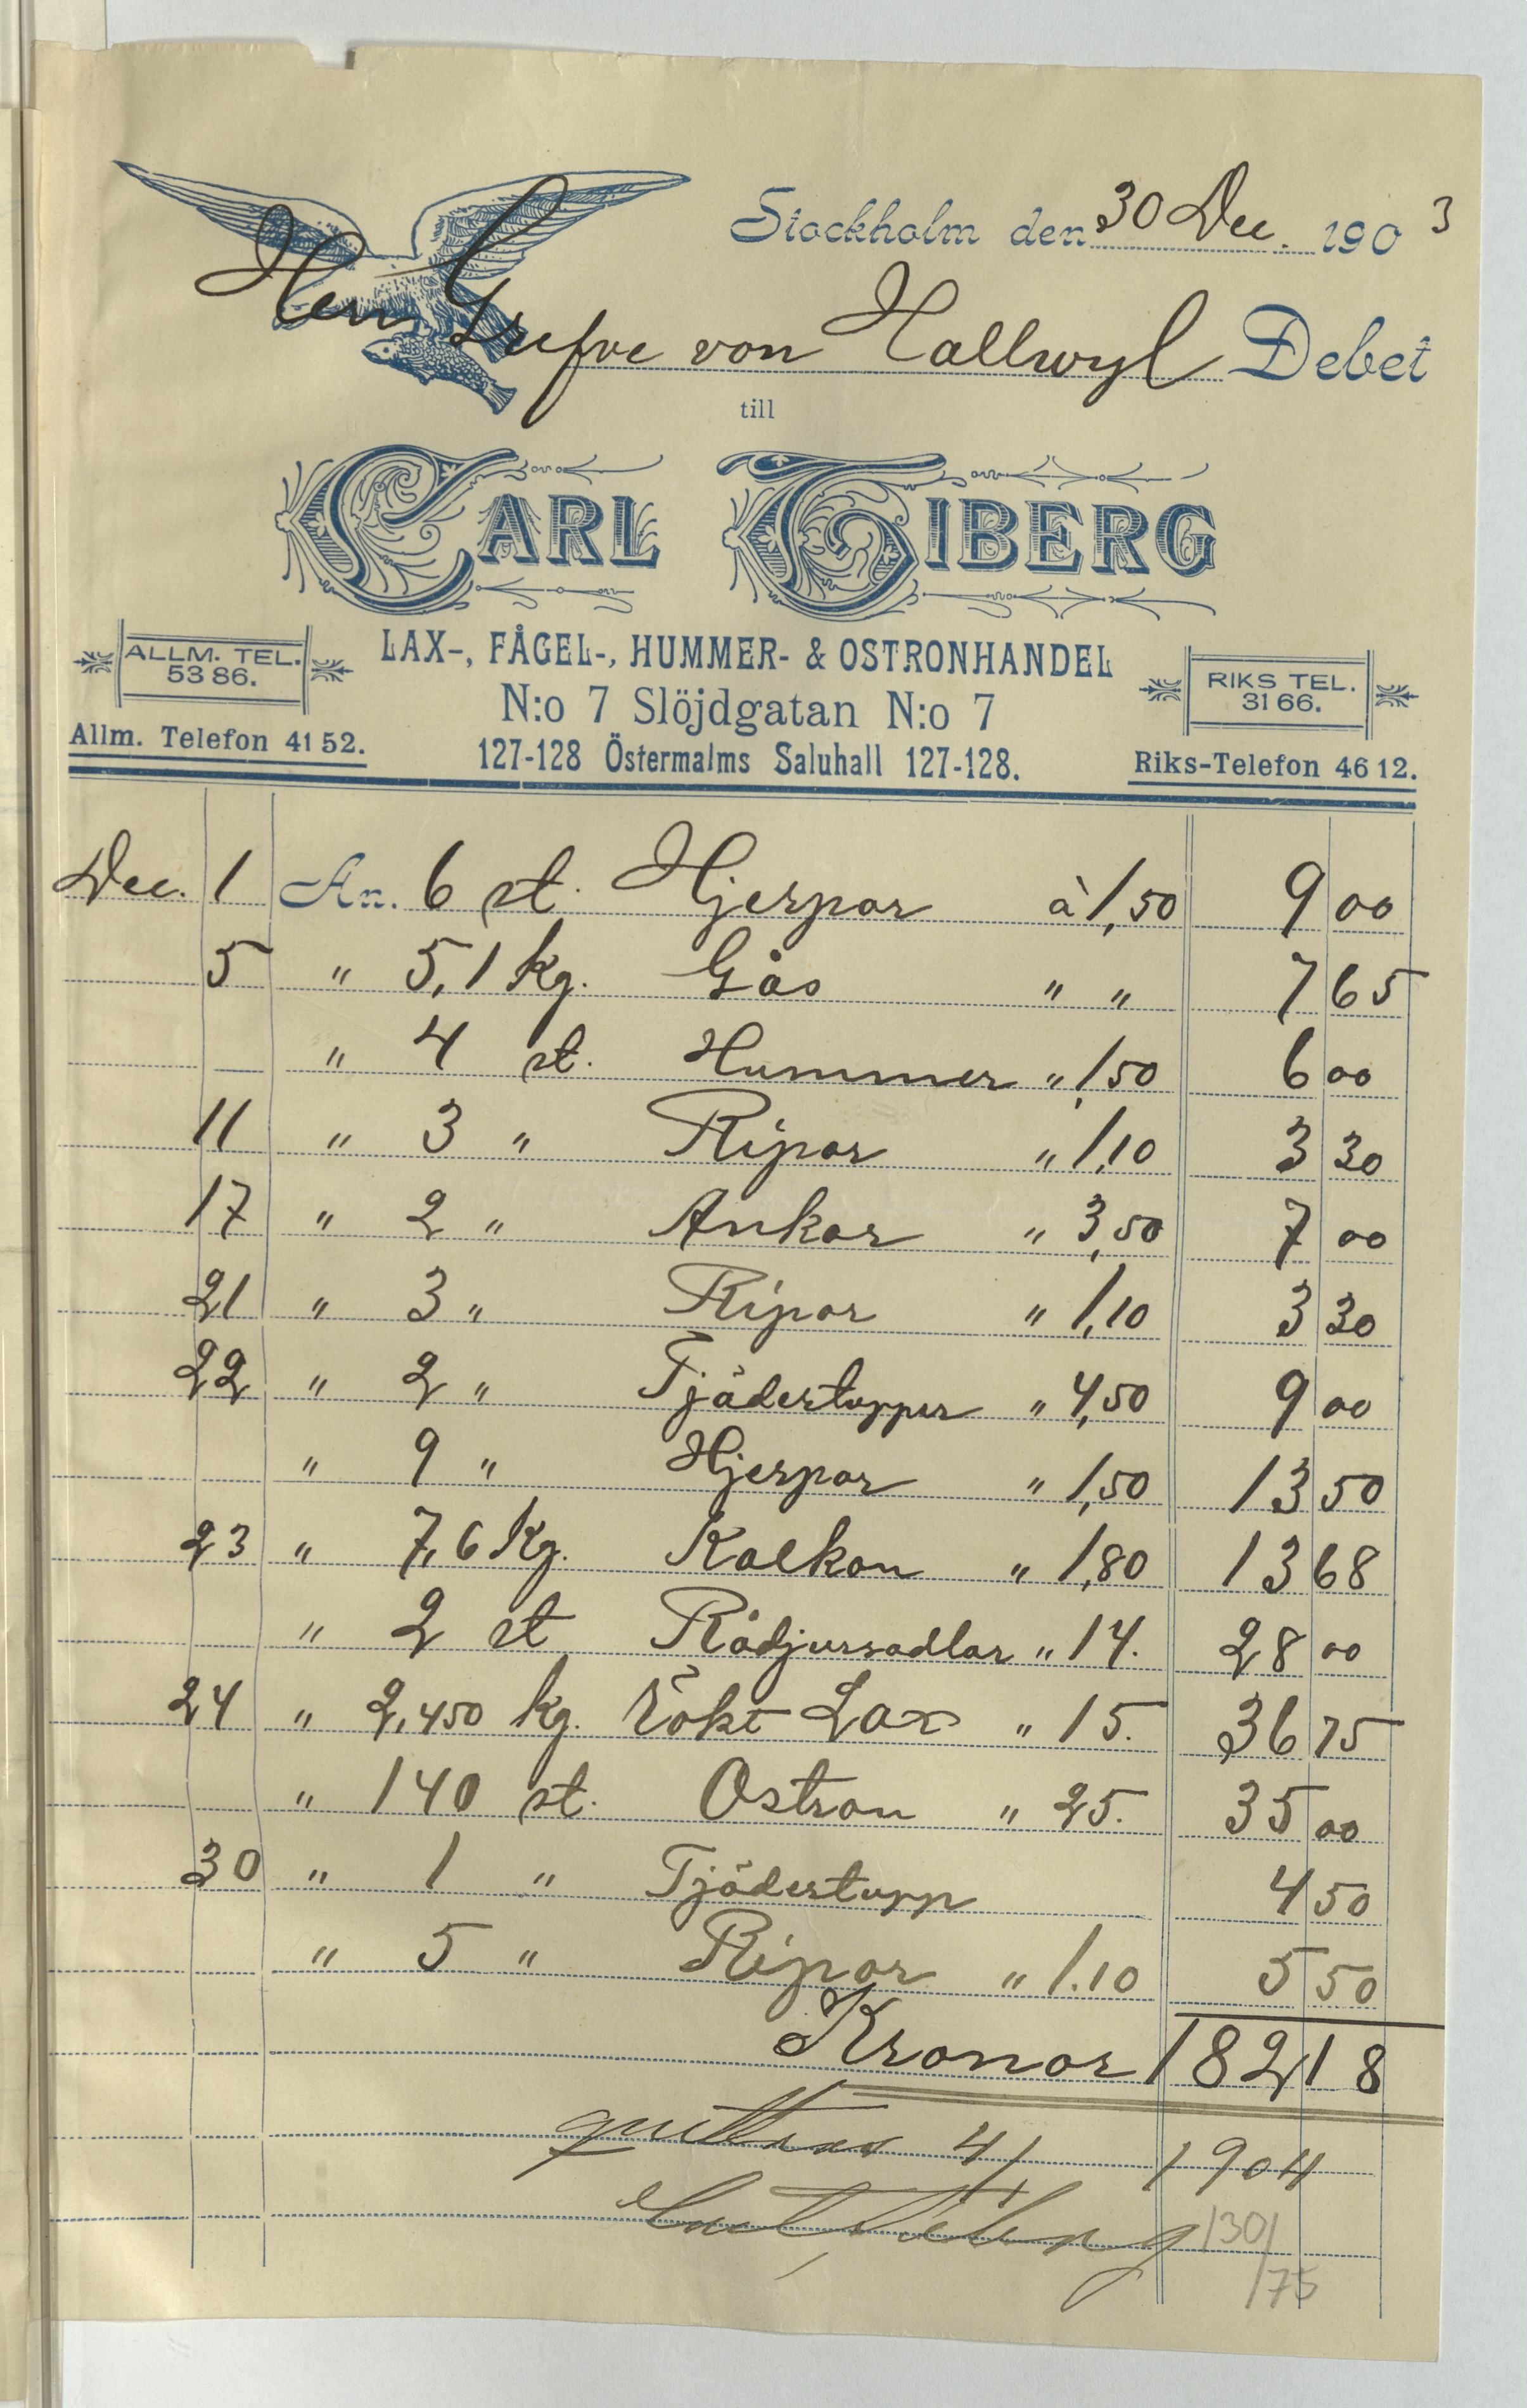 Stockholm den 30 Dec. 1903
Herr Grefve von Hallwyl Debet
till
CARL TIBERG
LAX-, FÅGEL-, HUMMER- & OSTRONHANDEL
ALLM. TEL. 5386.
RIKS TEL. 3166.
N:o 7 Slöjdgatan N:o 7
Allm. Telefon 4152.
127-128 Östermalms Saluhall 127-128.
Riks-Telefon 4612.
Dec. 1 An. 6 st. Hjerpar à 1,50 9 00
5 " 5,1 kg. Gås " " 7 65
" 4 st. Hummer " 1,50 6 00
11 " 3 " Ripor " 1,10 3 30
17 " 2 " Ankor " 3,50 7 00
21 " 3 " Ripor " 1,10 3 30
22 " 2 " Tjädertuppar " 4,50 9 00
" 9 " Hjerpar " 1,50 13 50
23 " 7,6 Kg. Kalkon " 1,80 13 68
" 2 st Rådjurssadlar " 14. 28 00
24 " 2,450 kg. Rökt Lax " 15. 36 75
" 140 st. Ostron " 25. 35 00
30 " 1 " Tjädertupp 4 50
" 5 " Ripor " 1.10 5 50
Kronor 182 18
quitteras 4/1 1904
Carl Tiberg
130/
/75